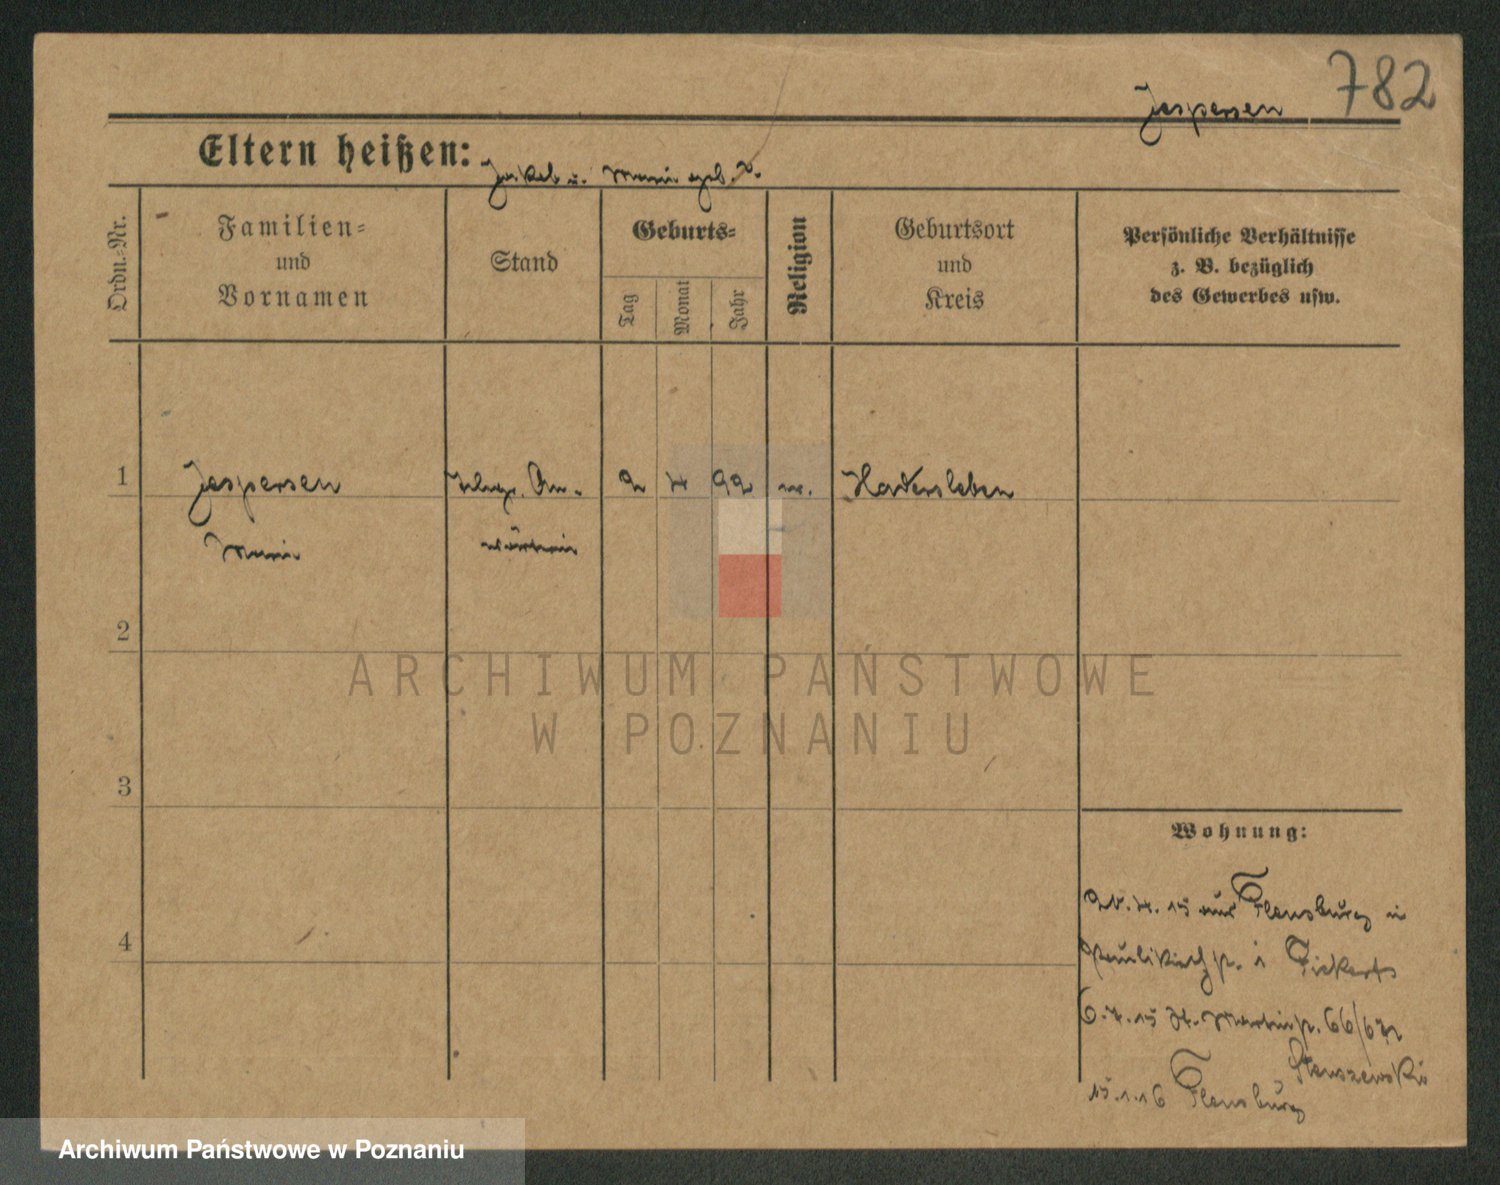 782
Jespersen
Eltern heißen: Jakob u. Marie geb. J.
Ordn.-Nr.
Familien- und Vornamen
Stand
Geburts-
Tag
Monat
Jahr
Religion
Geburtsort und Kreis
Persönliche Verhältnisse
z. B. bezüglich
des Gewerbes usw.
1 Jespersen Telegr. An- 2 4 92 Hadersleben
Marie wärterin
2
ARCHIWUM PAŃSTWOWE
W POZNANIU
3
Wohnung:
4. 15 aus Flensburg in
Paulikirchstr. 1 Fickert
6. 15 St. Martinstr. 66/67
Staszewski
15.1.16 Flensburg
4
Archiwum Państwowe w Poznaniu